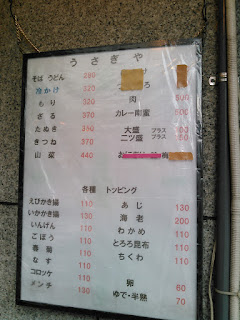 うさぎや
そば うどん 280
冷かけ 320
もり 320
ざる 370
たぬき 350
きつね 370
山菜 440
肉 500
カレー南蛮 500
大盛 プラス
二ツ盛 プラス
各種 トッピング
えびかき揚 110
いかかき揚 130
いんげん 110
ごぼう 110
春菊 110
なす 110
コロッケ 110
メンチ 130
あじ 130
海老 200
わかめ 110
とろろ昆布 110
ちくわ 110
卵 60
ゆで・半熟 70